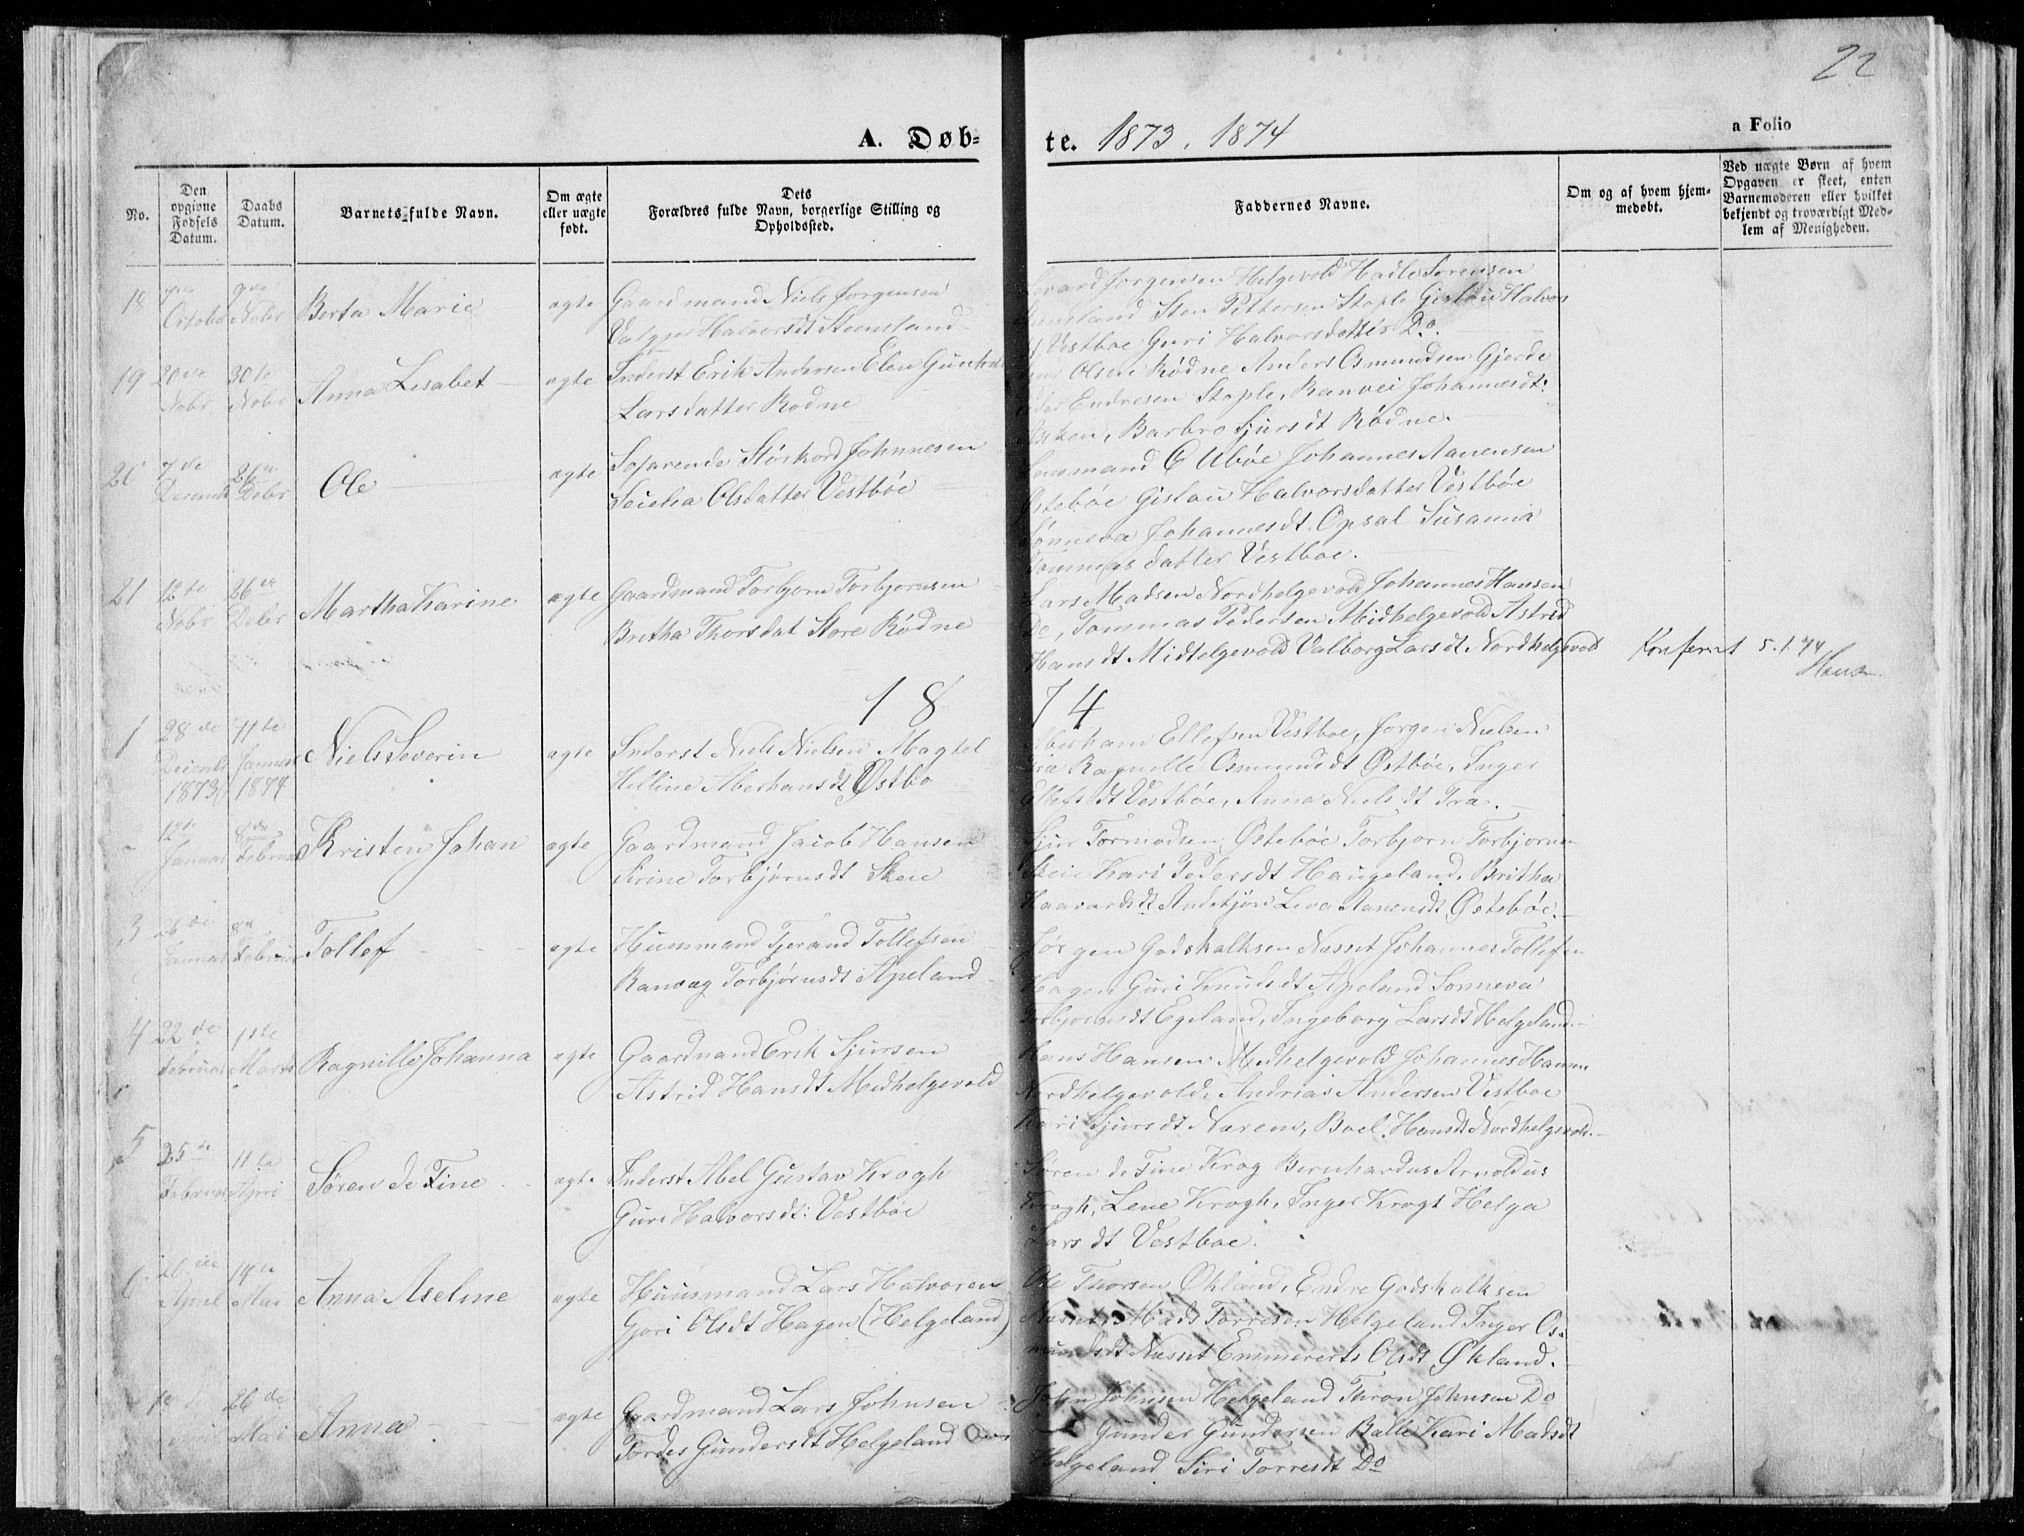 22
A. Døbte. 1873, 1874
a Folio
No.
Den opgivne Fødsels Datum.
Daabs Datum.
Barnets fulde Navn.
Om ægte eller uægte født.
Dets Forældres fulde Navn, borgerlige Stilling og Opholdssted.
Faddernes Navne.
Om og af hvem hjemmedøbt.
Ved uægte Børn af hvem Opgaven er skeet, enten Barnemoderen eller hvilket bekjendt og troværdigt Medlem af Menigheden.
18
Octobr Nobr
Berta Marie
ægte
Gaardmand Niels Jørgensen
Halvorsdt Steensland
Jørgensen Helgevold Hadle Sørensen
Sten Pittersen Stople Gislau Halvors
Vestbøe Guri Halvorsdatter Do.
19
20de Nobr
30te Nobr
Anna Lisabet
ægte
Inderst Erik Andersen Elen Gunhild
Larsdatter Rødne
Olsen Rødne Anders Osmundsen Gjerde
Endresen Stople, Ranvei Johannesdt:
Barbro Sjursdt Rødne.
20
7de
26de Debr
Ole
ægte
Sofarende Johnnesen
Olsdatter Vestbøe
Lensmand C Ubøe Johannes Aanensen
Østebøe Gislau Halvorsdatter Vestbøe
Sønneva Johannesdt Opsal Susanna
Tommasdatter Vestbøe.
21
12te Nobr
26de Debr
Martha Karine
ægte
Gaardmand Torbjørn Torbjørnsen
Britha Thorsdat Store Rødne
Lars Madsen Nordhelgevold Johannes Hansen
Do, Tommas Pedersen Midhelgevold Astrid
Hansdt Midtelgevold Valborg Larsdt Nordhelgevold
Konferert 5.1.74
1874
1
28de 1873
11te Januar 1874
Niels Severin
ægte
Inderst Niels Nielsen Magtel
Helline Aberhamsdt Østbø
Aberham Ellefsen Vestbøe, Jørgen Nielsen
Ragnille Osmundsdt Østbøe, Inger
Ellefsdt Vestbøe, Anna Nielsdt Træ.
12te Januar
8de Februar
Kristen Johan
ægte
Gaardmand Jacob Hansen
Sirine Torbjørnsdt Skeie
Sjur Tormodsen Østebøe Torbjørn Torbjørnsen
Skeie Kari Pedersdt Haugeland, Britha
Haavardsdt Leva Aanensdt Østebøe.
3
26de Januar
8de Februar
Tollef
ægte
Huusmand Tjerand Tollefsen
Ranvæg Torbjørnsdt Apeland
Jørgen Godskalksen Næsset Johannes Tollefsen
Hagen Guri Knudsdt Apeland Sønneva
Torbjørnsdt Egeland, Ingeborg Larsdt Helgeland.
4
22de Februar
1ste Marts
Ragnille Johanna
ægte
Gaardmand Erik Sjursen
Astrid Hansdt Medhelgevold
Hans Hansen Midhelgevold Johannes Hansen
Nordhelgevold, Andrias Andersen Vestbøe
Kari Sjursdt Norem, Boel Hansdt Nordhelgevold.
5
25de Februar
11te April
Søren de Fine
ægte
Inderst Abel Gustav Krogh
Guri Halvorsdt: Vestbøe
Søren de Fine Krog Bernhardus Arnoldus
Krogh, Lene Krogh, Inger Krogh Helga
Larsdt Vestbøe.
6
April
14de Mai
Anna Aseline
ægte
Huusmand Lars Halvorsen
Gjøri Olsdt Hagen (Helgeland)
Ole Thorsen Økland, Endre Godskalksen
Næsset, Mads Torresen Helgeland Inger Os-
mundsdt Næsset Olsdt Økland.
26de Mai
Anna
ægte
Gaardmand Lars Johnsen
Tordes Gundersdt Helgeland
John Johnsen Helgeland Thron Johnsen Do
Gunder Gundersen Balle Kari Madsdt
Helgeland Siri Torresdt Do